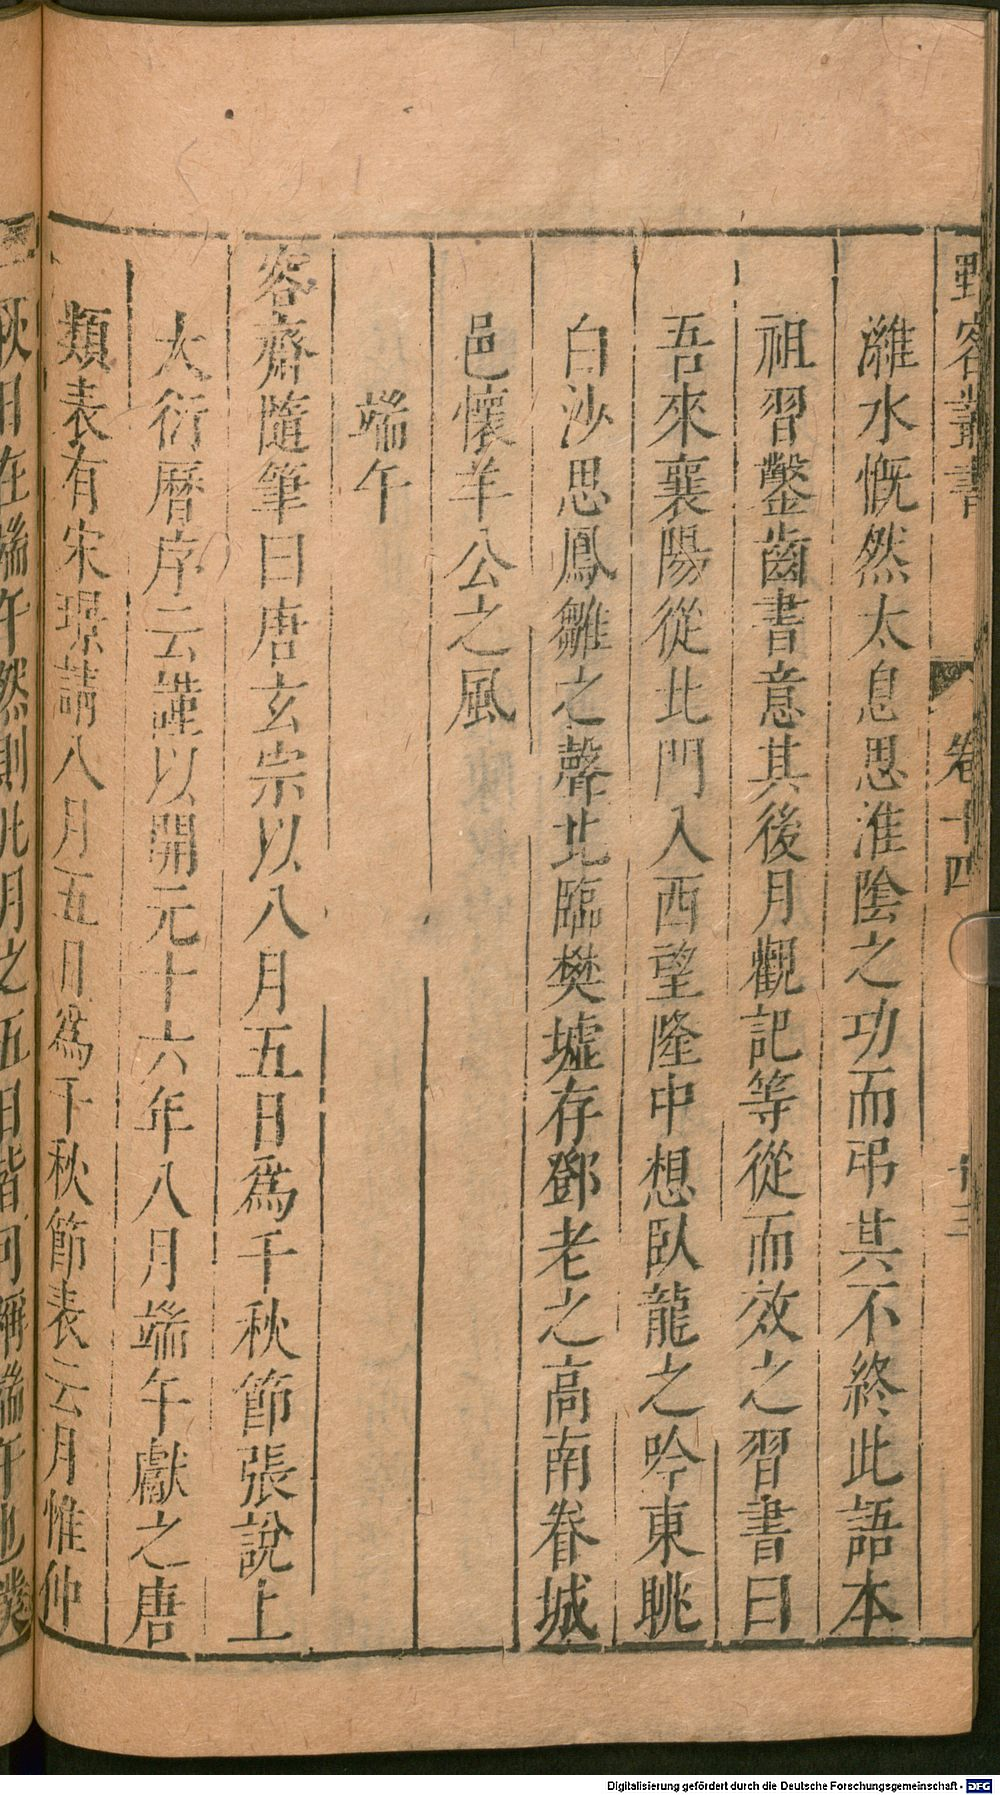 野客叢書
卷十四
濰水慨然太息思淮陰之功而弔其不終此語本
祖習鑿齒書意其後月觀記等從而效之習書曰
吾來襄陽從北門入西望隆中想臥龍之吟東眺
白沙思鳳雛之聲北臨樊墟存鄧老之高南眷城
邑懷羊公之風
端午
容齋隨筆曰唐玄宗以八月五日爲千秋節張說上
大衍曆序云謹以開元十六年八月端午獻之唐
類表有宋璟請八月五日爲千秋節表云月惟仲
秋日在端午然則凡月之五日皆可稱端午也僕
Digitalisierung gefördert durch die Deutsche Forschungsgemeinschaft - DFG